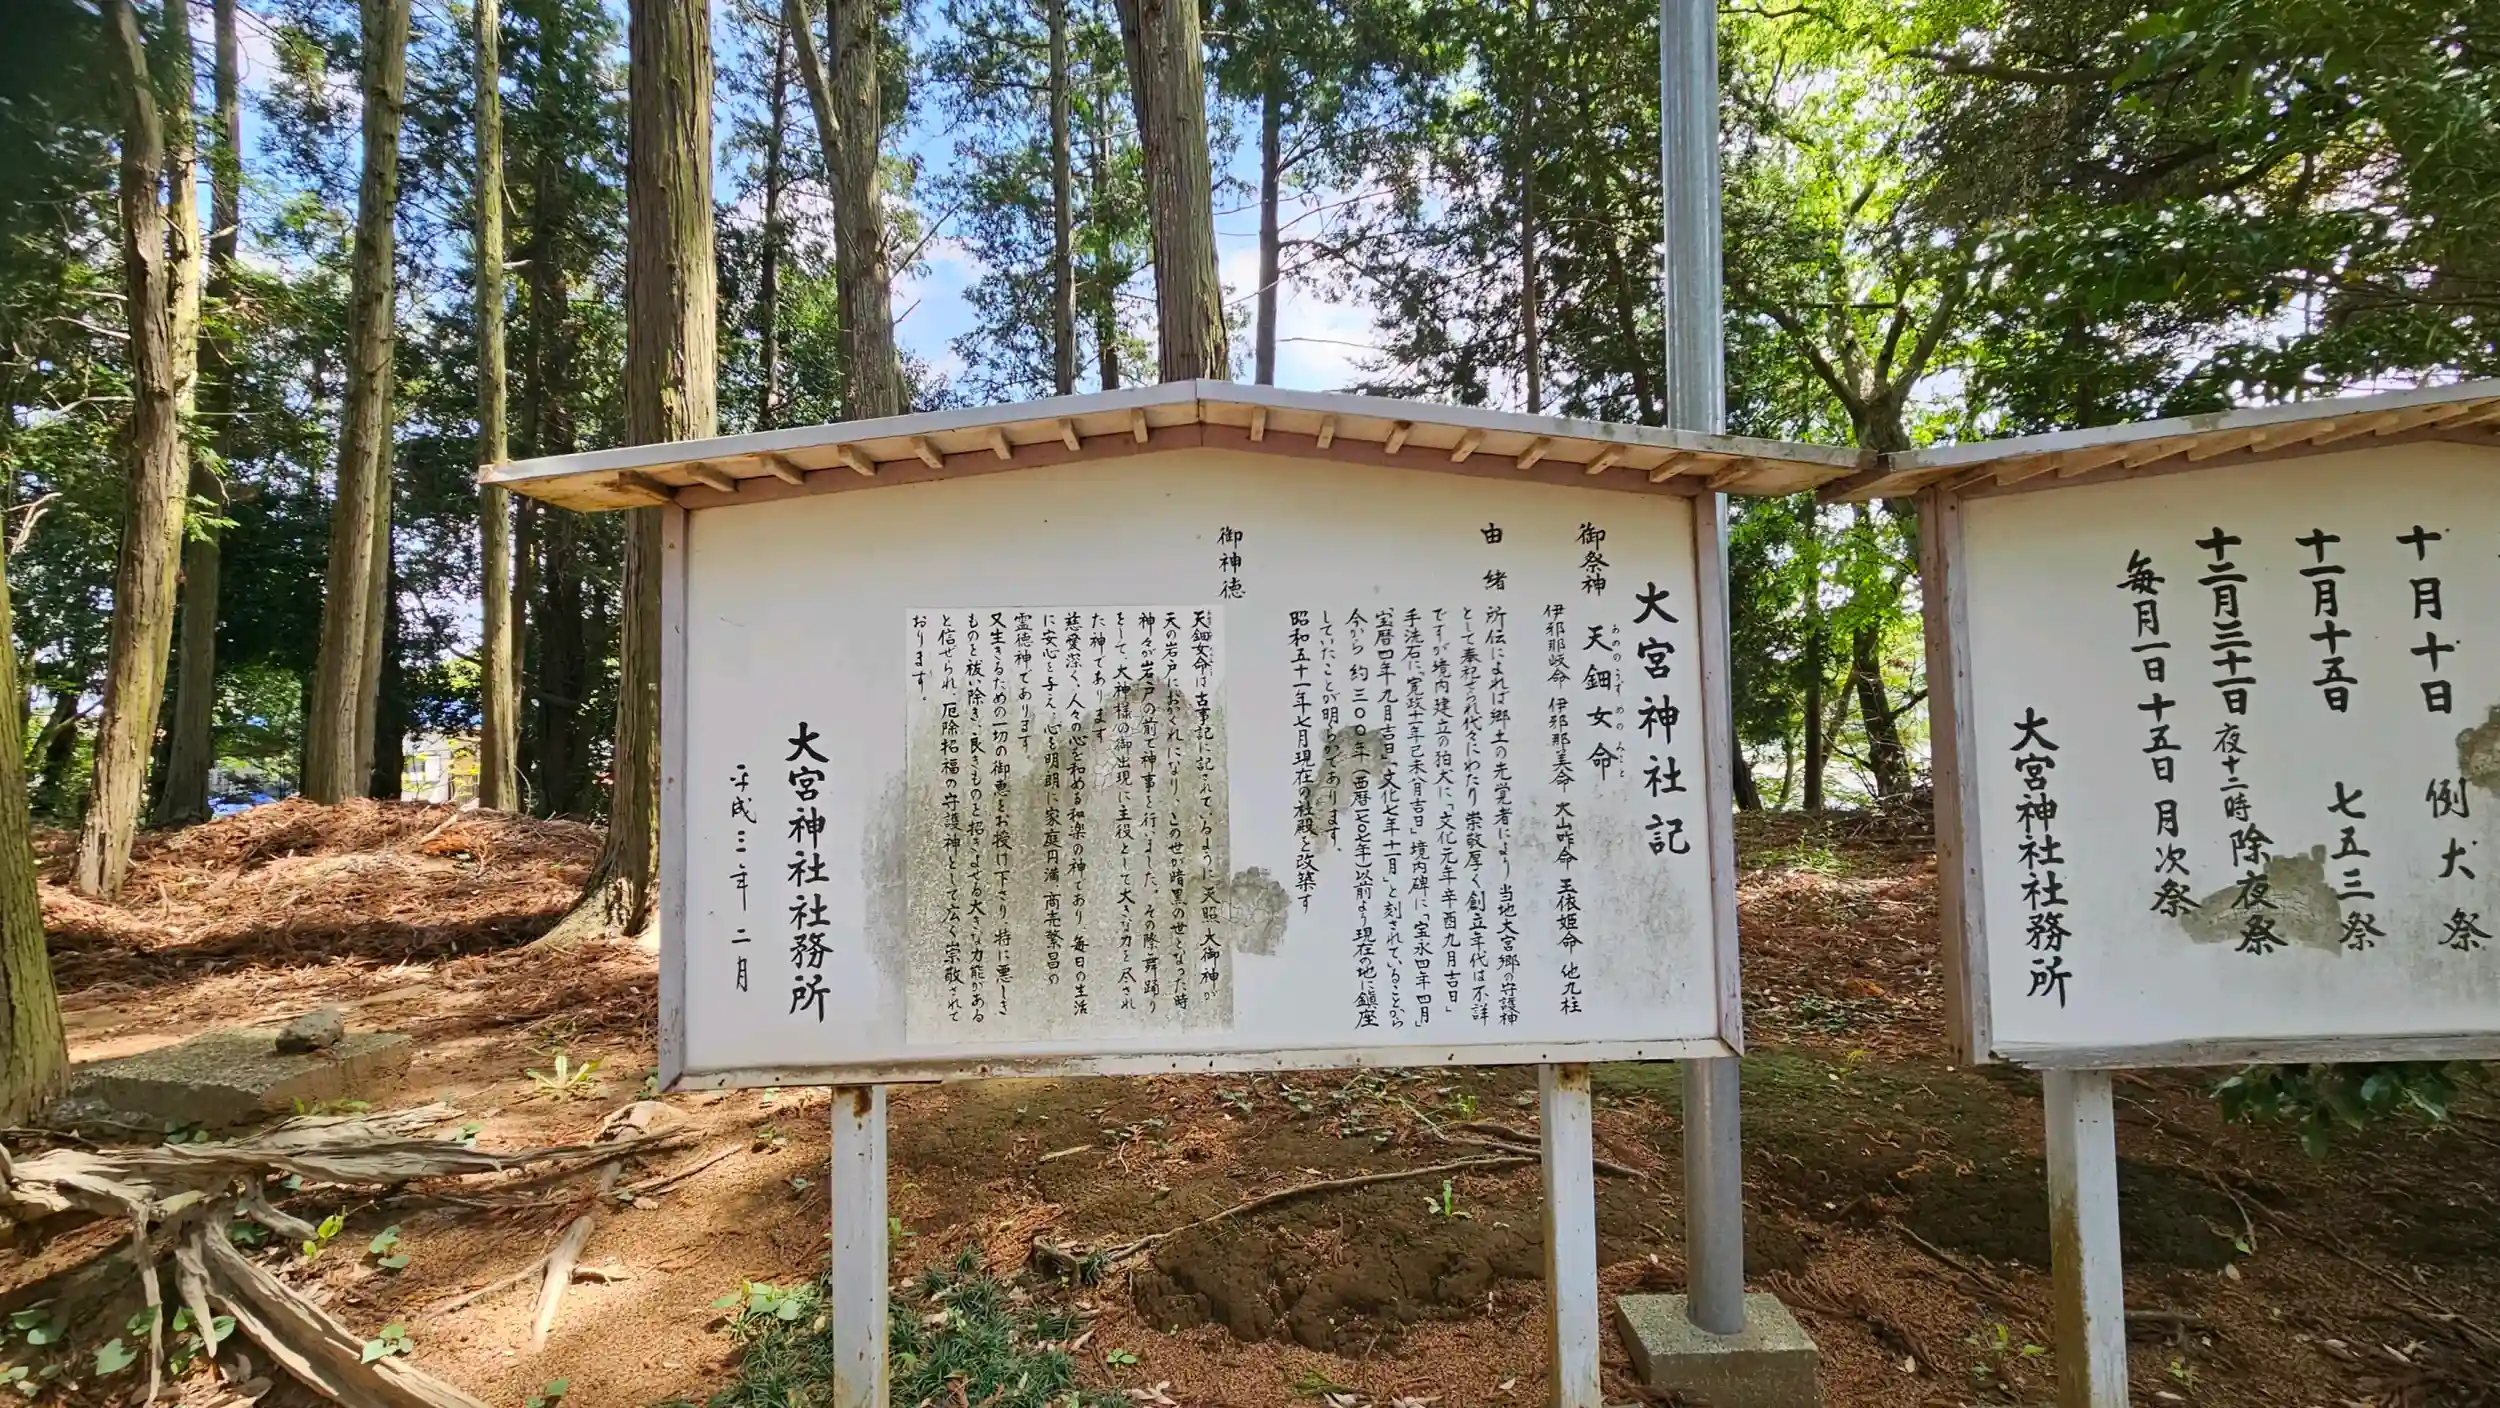 大宮神社記
御祭神 天鈿女命
あめのうずめのみこと
伊邪那岐命 伊邪那美命 大山咋命 玉依姫命 他九柱
由緒 所伝によれば郷土の先覚者により当地大宮郷の守護神
として奉祀され代々にわたり崇敬厚く創立年代は不詳
ですが境内建立の狛犬に「文化元年辛酉九月吉日」
手洗石に「寛政十一年己未八月吉日」境内碑に「宝永四年四月」
「宝暦四年九月吉日」「文化七年十一月」と刻されていることから
今から約三〇〇年(西暦一七〇七年)以前より現在の地に鎮座
していたことが明らかであります。
昭和五十一年七月現在の社殿を改築す
御神徳
天鈿女命は古事記に記されているように天照大御神が
天の岩戸におかくれになりこの世が暗黒の世となった時
神々が岩戸の前で神事を行いました。その際、舞踊り
をして、大神様の御出現に主役として大きな力を尽され
た神であります
慈愛深く、人々の心を和める和楽の神であり、毎日の生活
に安心を与え、心を明朗に家庭円満、商売繁昌の
霊徳神であります。
又生きるための一切の御恵をお授け下さり、特に悪しき
ものを祓い除き、良きものを招きよせる大きな力能がある
と信ぜられ、厄除招福の守護神として広く崇敬されて
おります。
大宮神社社務所
平成三年二月
十月十日 例大祭
十一月十五日 七五三祭
十二月三十一日夜十二時除夜祭
毎月一日十五日月次祭
大宮神社社務所